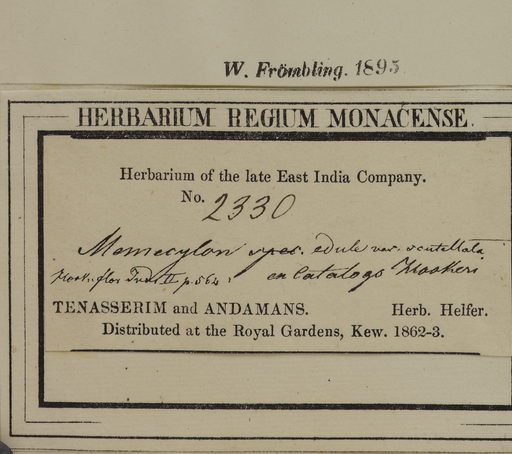 W. Frömbling. 1895
HERBARIUM REGIUM MONACENSE.
Herbarium of the late East India Company.
No. 2330
Memecylon spec. edule var. scutellata
Hook. flor Ind. II p. 564, ex Catalogo Hookeri
TENASSERIM and ANDAMANS. Herb. Helfer.
Distributed at the Royal Gardens, Kew. 1862-3.